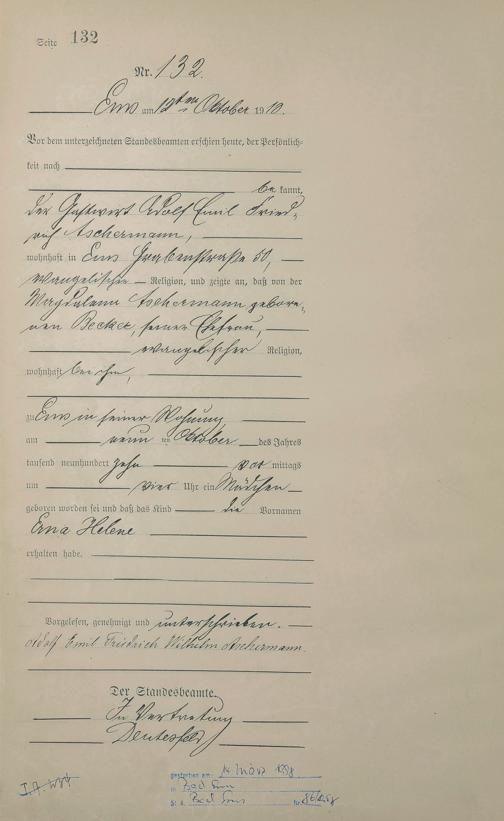 Seite 132
Nr. 132.
Ems am 12ten Oktober 1910.
Vor dem unterzeichneten Standesbeamten erschien heute, der Persönlich-
keit nach
be kannt,
der Gastwirt Adolf Emil Fried-
rich Aschermann,
wohnhaft in Ems Grabenstraße 50,
evangelischer Religion, und zeigte an, daß von der
Magdalena Aschermann gebore-
nen Becker, seiner Ehefrau,
evangelischer Religion,
wohnhaft bei ihm,
zu Ems in seiner Wohnung
am neun ten Oktober des Jahres
tausend neunhundert zehn vor mittags
um vier Uhr ein Mädchen
geboren worden sei und daß das Kind die Vornamen
Erna Helene
erhalten habe.
Vorgelesen, genehmigt und unterschrieben.
Adolf Emil Friedrich Wilhelm Aschermann.
Der Standesbeamte.
In Vertretung
gestorben am: 14 März
in Bad Ems
St. A. Bad Ems Nr.